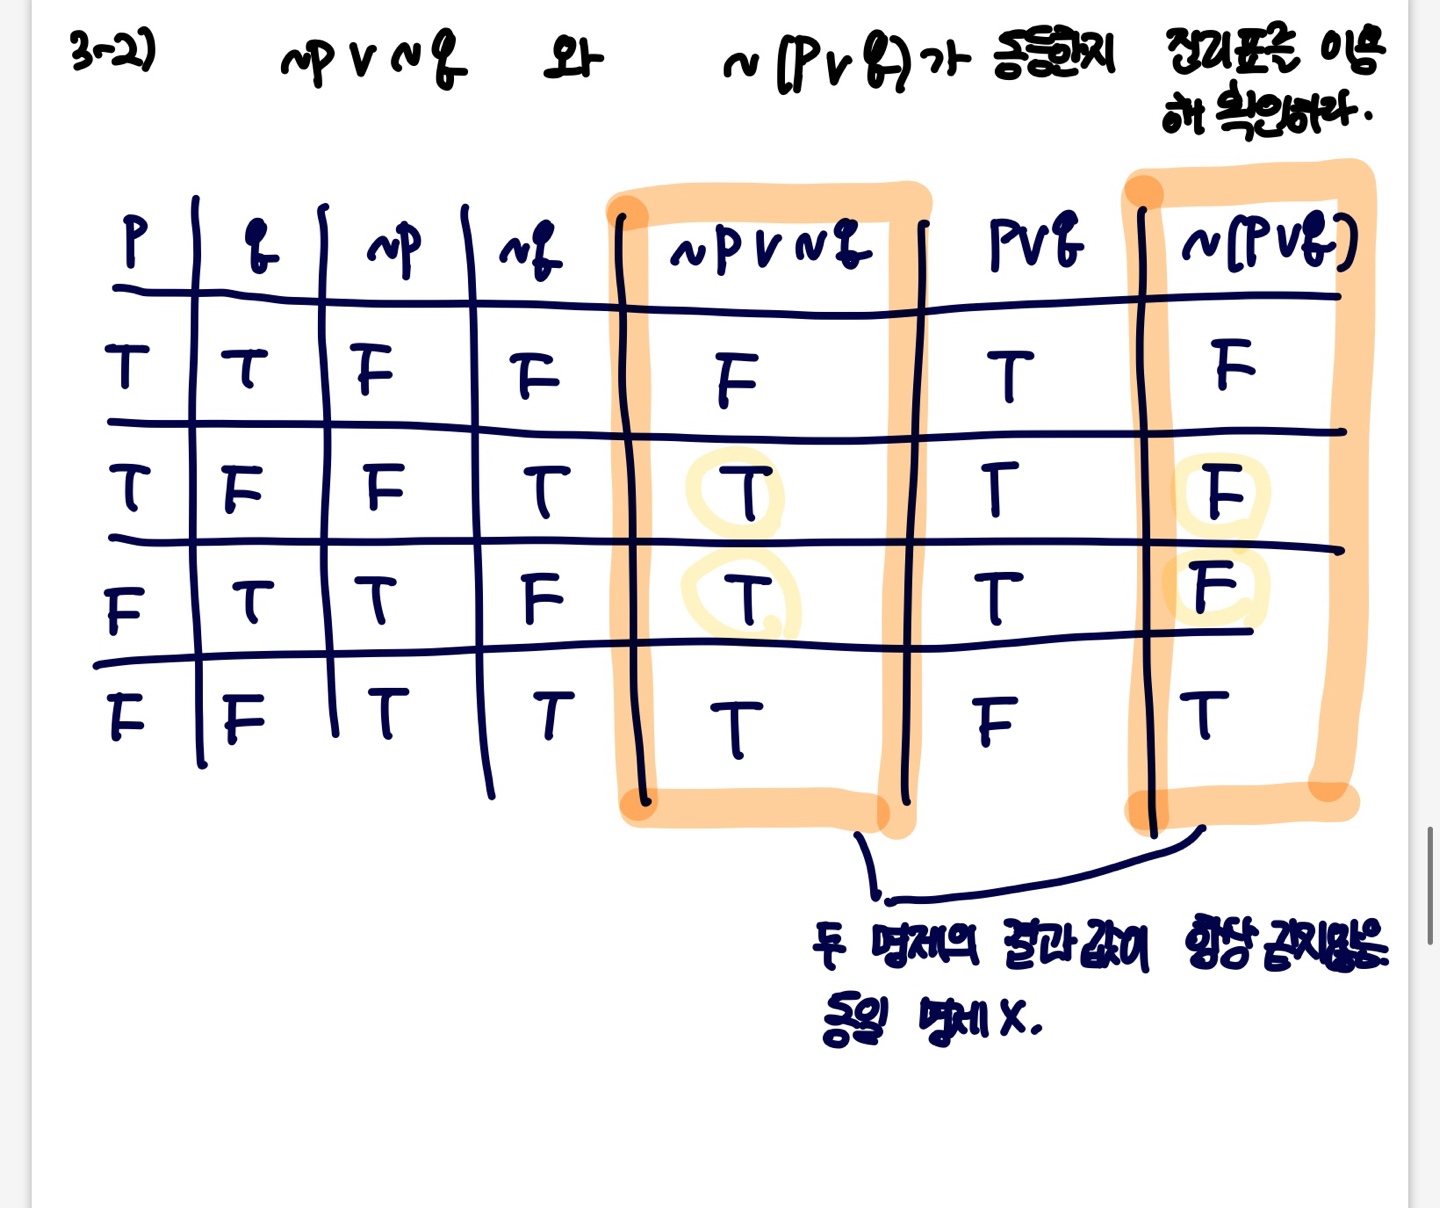 3-2) ~p ∨ ~q 와 ~(p∨q)가 동등한지 진리표를 이용
해 확인하라.
p q ~p ~q ~p ∨ ~q p∨q ~(p∨q)
T T F F F T F
T F F T T T F
F T T F T T F
F F T T T F T
두 명제의 결과값이 항상 같지않음.
동일 명제 X.